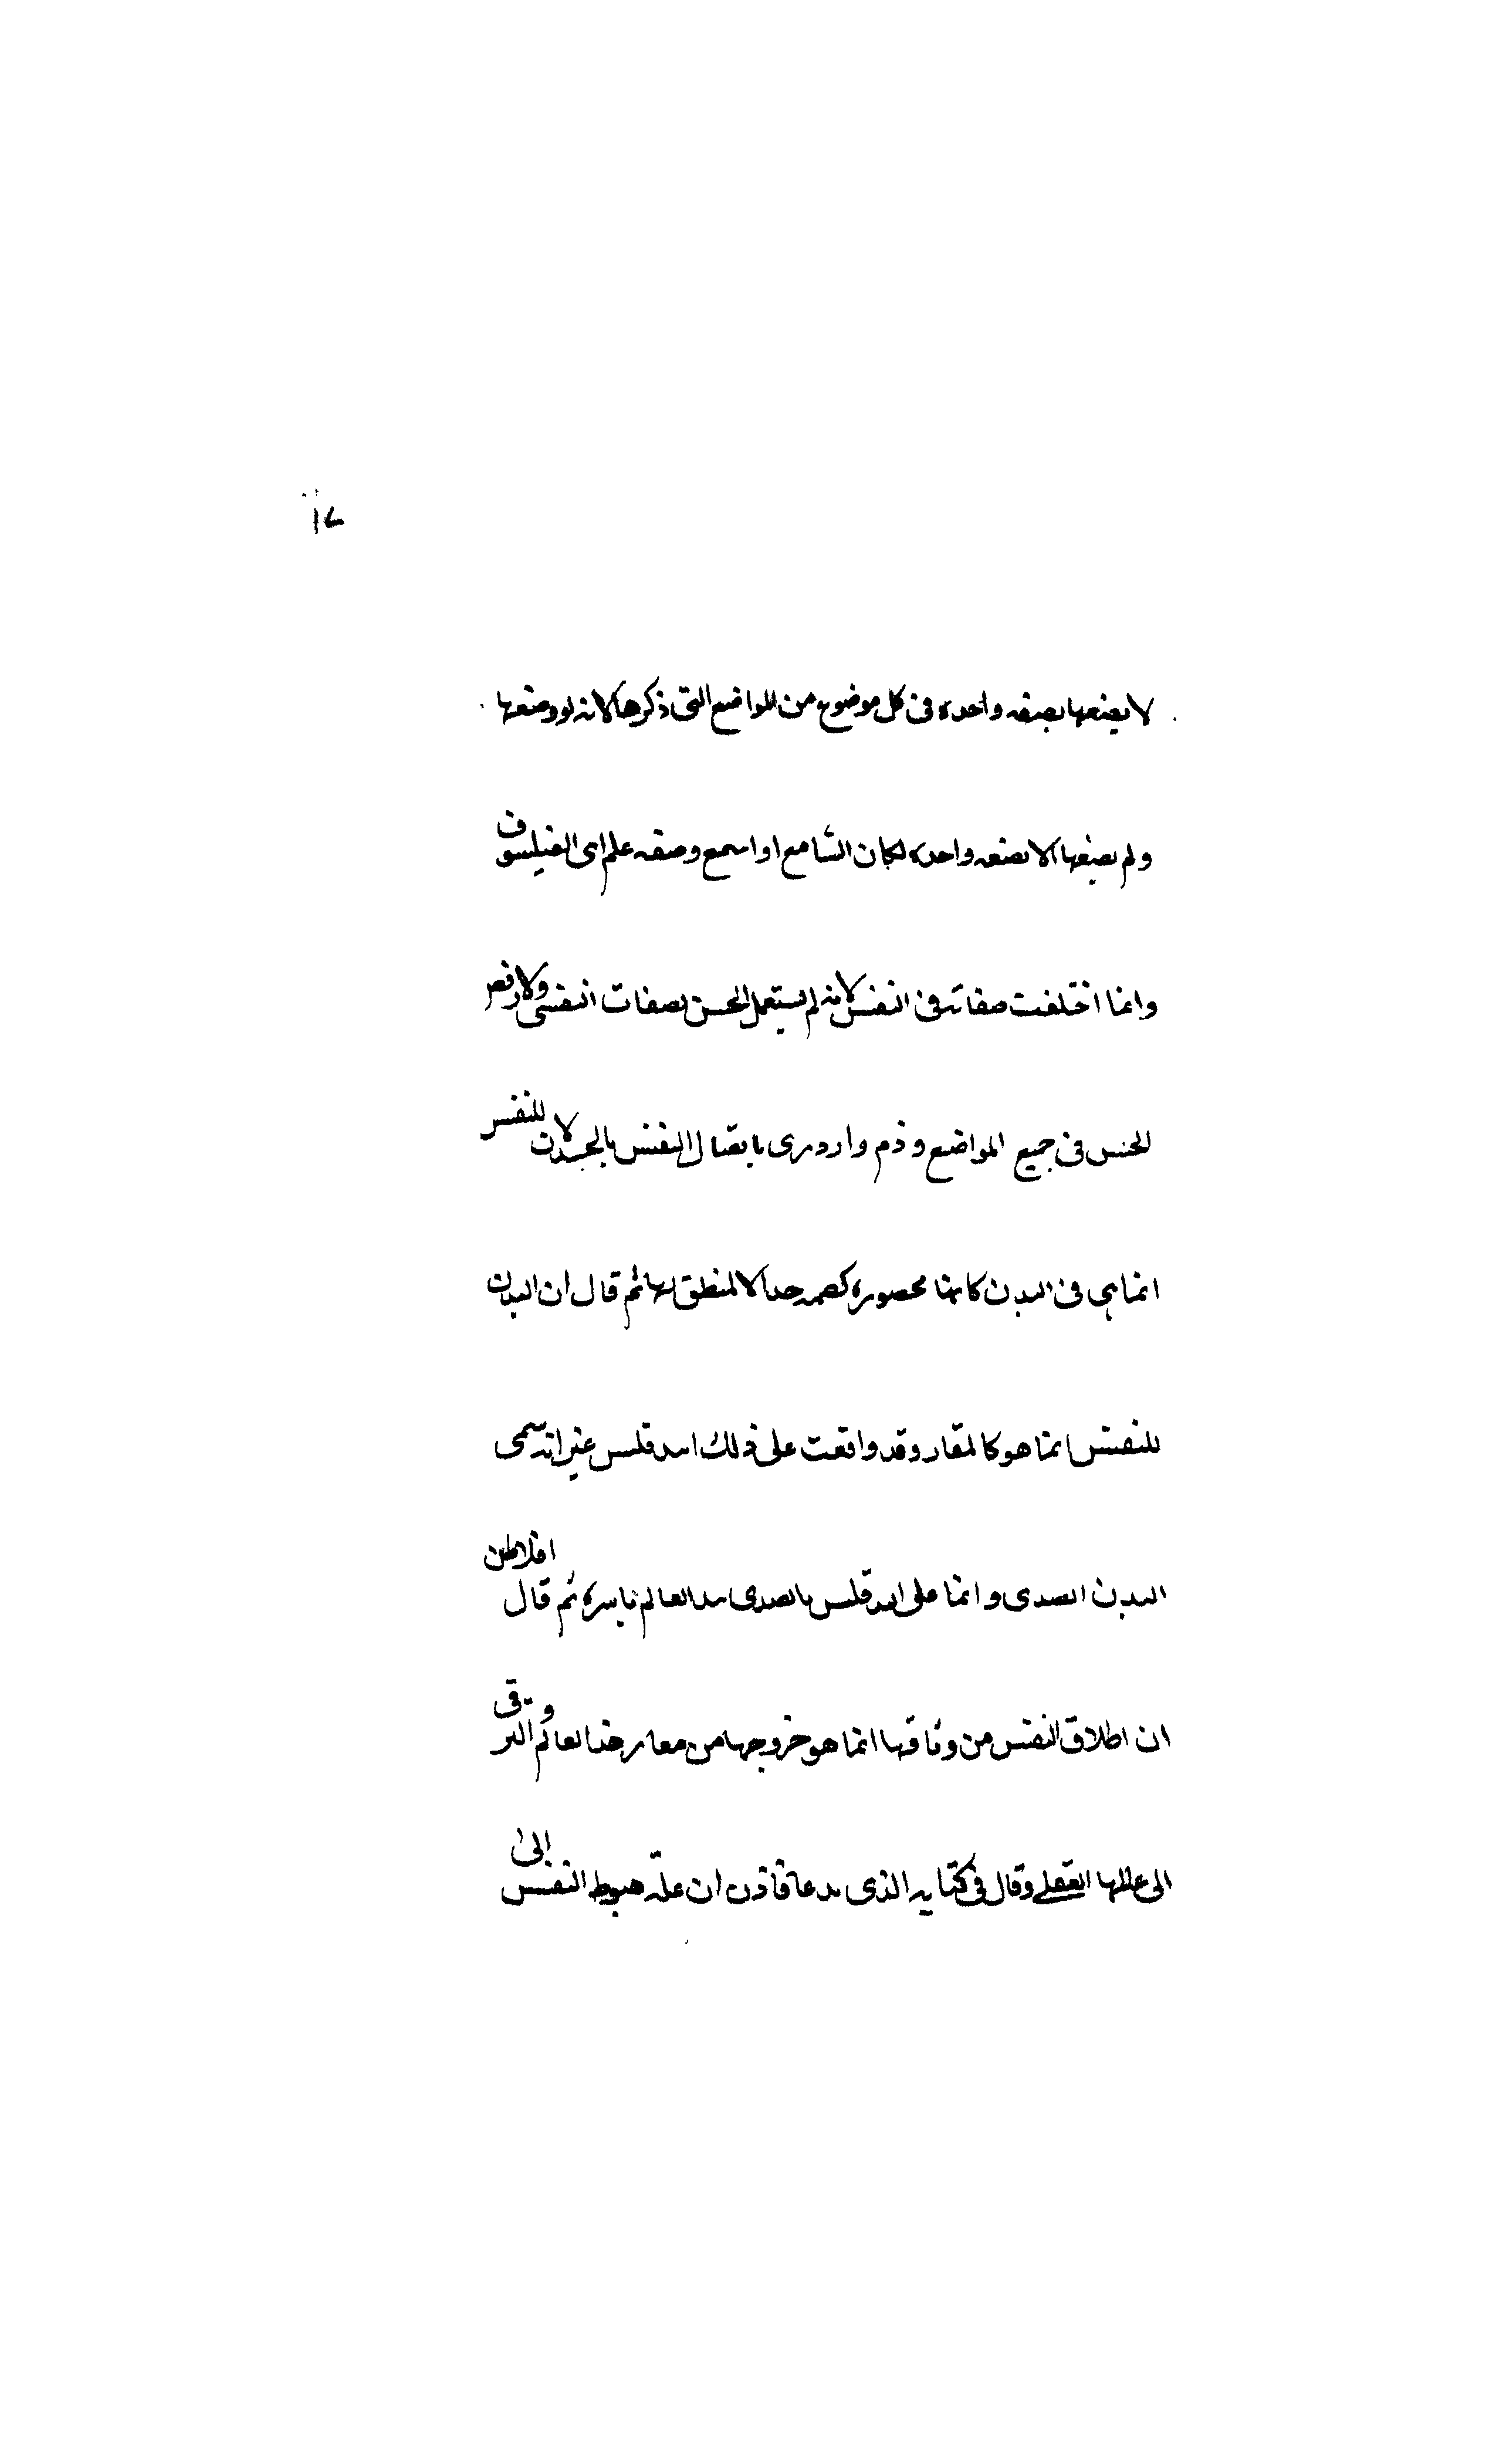 ١٧
لا يصفها بصفه واحده فى كل موضوع من المواضع التى ذكرها لانه لو وصفها
ولم يصفها الا بصفه واحده لكان السامع اذا سمع وصفه علم راى الفيلسوف
وانما اختلفت صفاته فى النفس لانه لم يستعمل الحسن بصفات النفس ولا رفض
الحس فى جميع المواضع وذم وازدرى باتصال النفس بالجسد لان للنفس
انما هى فى البدن كانها محصوره جدا لا منطق لها ثم قال ان البدن
للنفس انما هو كالمغار وقد وافقت على ذلك اسدقلس غير انه سمى
البدن الصدى وانما على اسدقلس بالصدى هدا العالم باسره ثم قال افلاطن
ان اطلاق النفس من وثاقها انما هو خروجها من مغار هذا العالم والترقى
الى عالمها العقلى وقال فى كتابه الذى يدعا قاذرن ان علة هبوط النفس الى